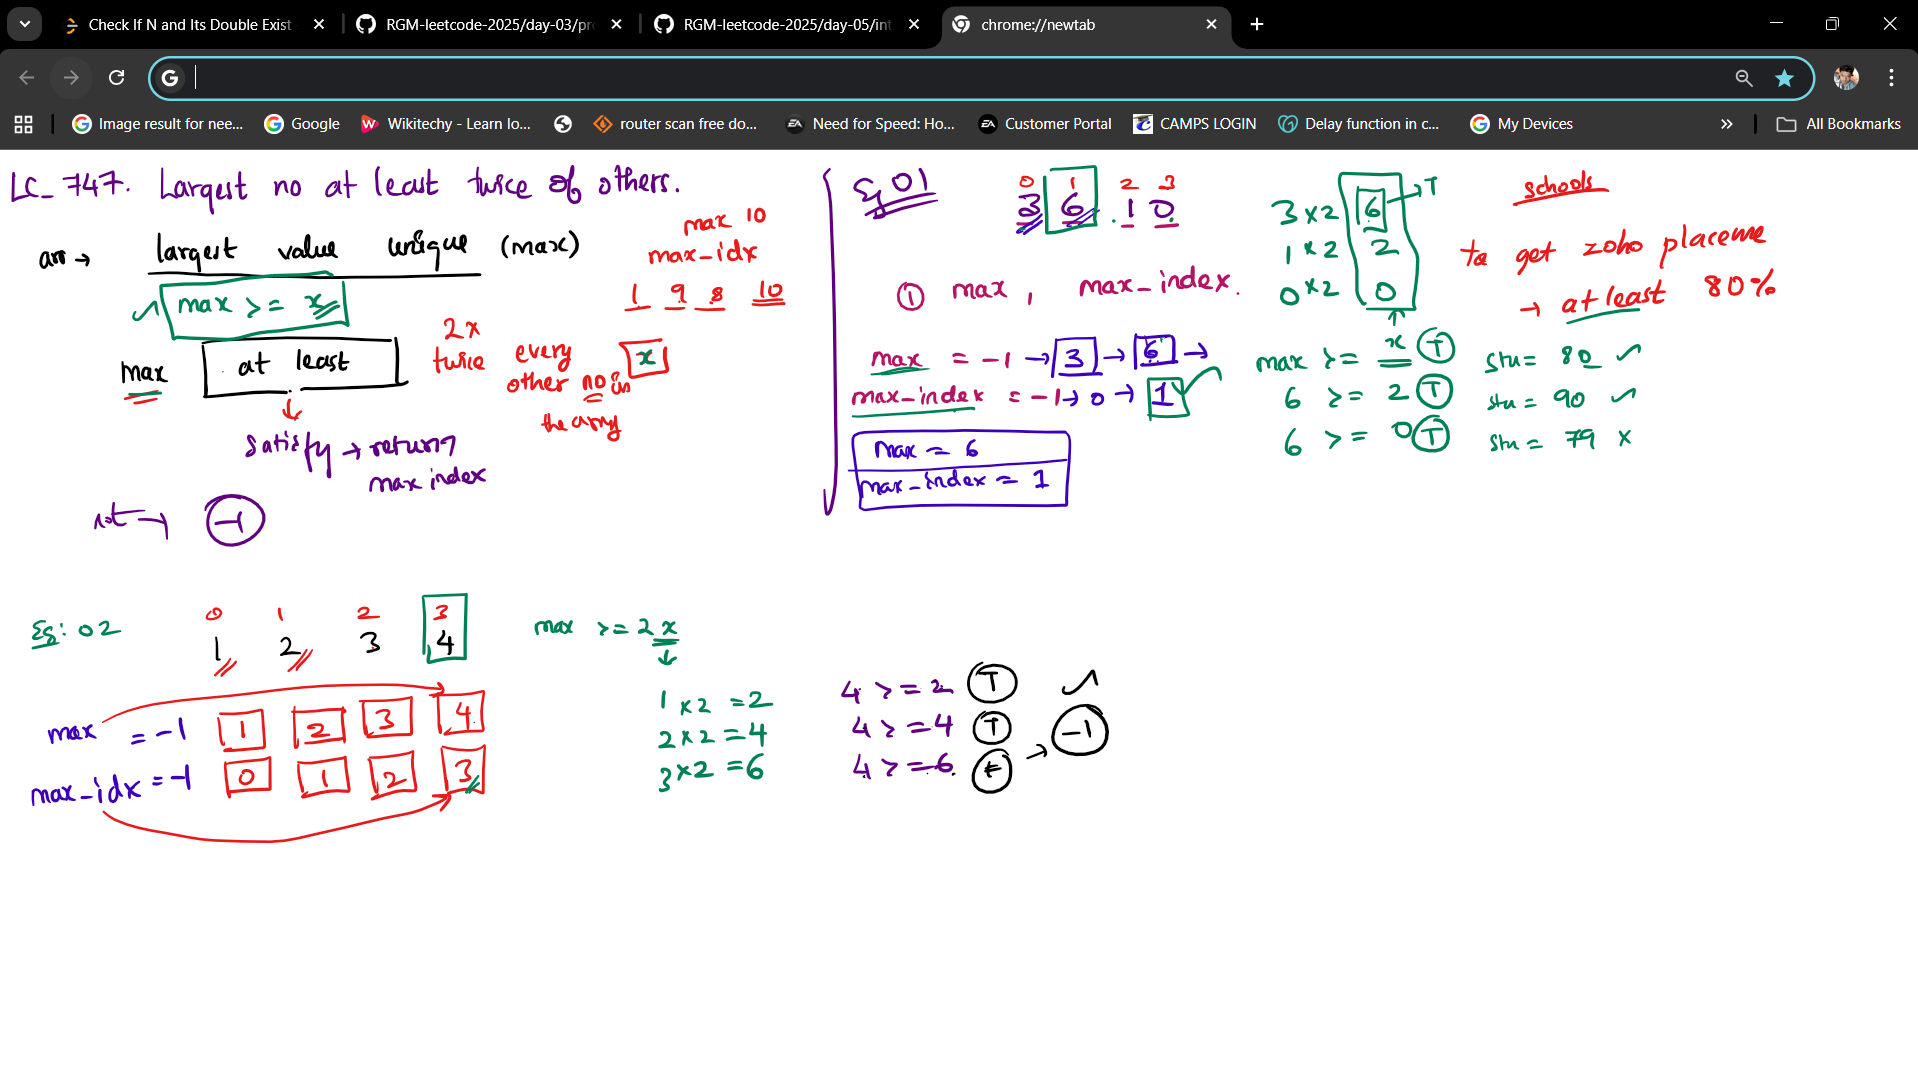 Check If N and Its Double Exist
RGM-leetcode-2025/day-03/pr
RGM-leetcode-2025/day-05/int
chrome://newtab
Image result for nee...
Google
Wikitechy - Learn lo...
router scan free do...
Need for Speed: Ho...
Customer Portal
CAMPS LOGIN
Delay function in c...
My Devices
All Bookmarks
LC_747. Largest no at least twice of others.
arr → largest value unique (max)
max >= x
max at least 2x twice every other no in the array x
satisfy → return max index
not → -1
max 10
max-idx
1 9 8 10
Eg 01
0 1 2 3
3 6 1 0
① max, max-index.
max = -1 → 3 → 6 →
max-index = -1 → 0 → 1
max = 6
max-index = 1
3 x 2 6 → T
1 x 2 2
0 x 2 0
max >= x T
6 >= 2 T
6 >= 0 T
schools
to get zoho placeme
→ at least 80%
Stu = 80 ✓
stu = 90 ✓
stu = 79 x
Eg: 02
0 1 2 3
1 2 3 4
max = -1 1 2 3 4
max-idx = -1 0 1 2 3
max >= 2x
1 x 2 = 2
2 x 2 = 4
3 x 2 = 6
4 >= 2 T ✓
4 >= 4 T
4 >= 6 F → -1